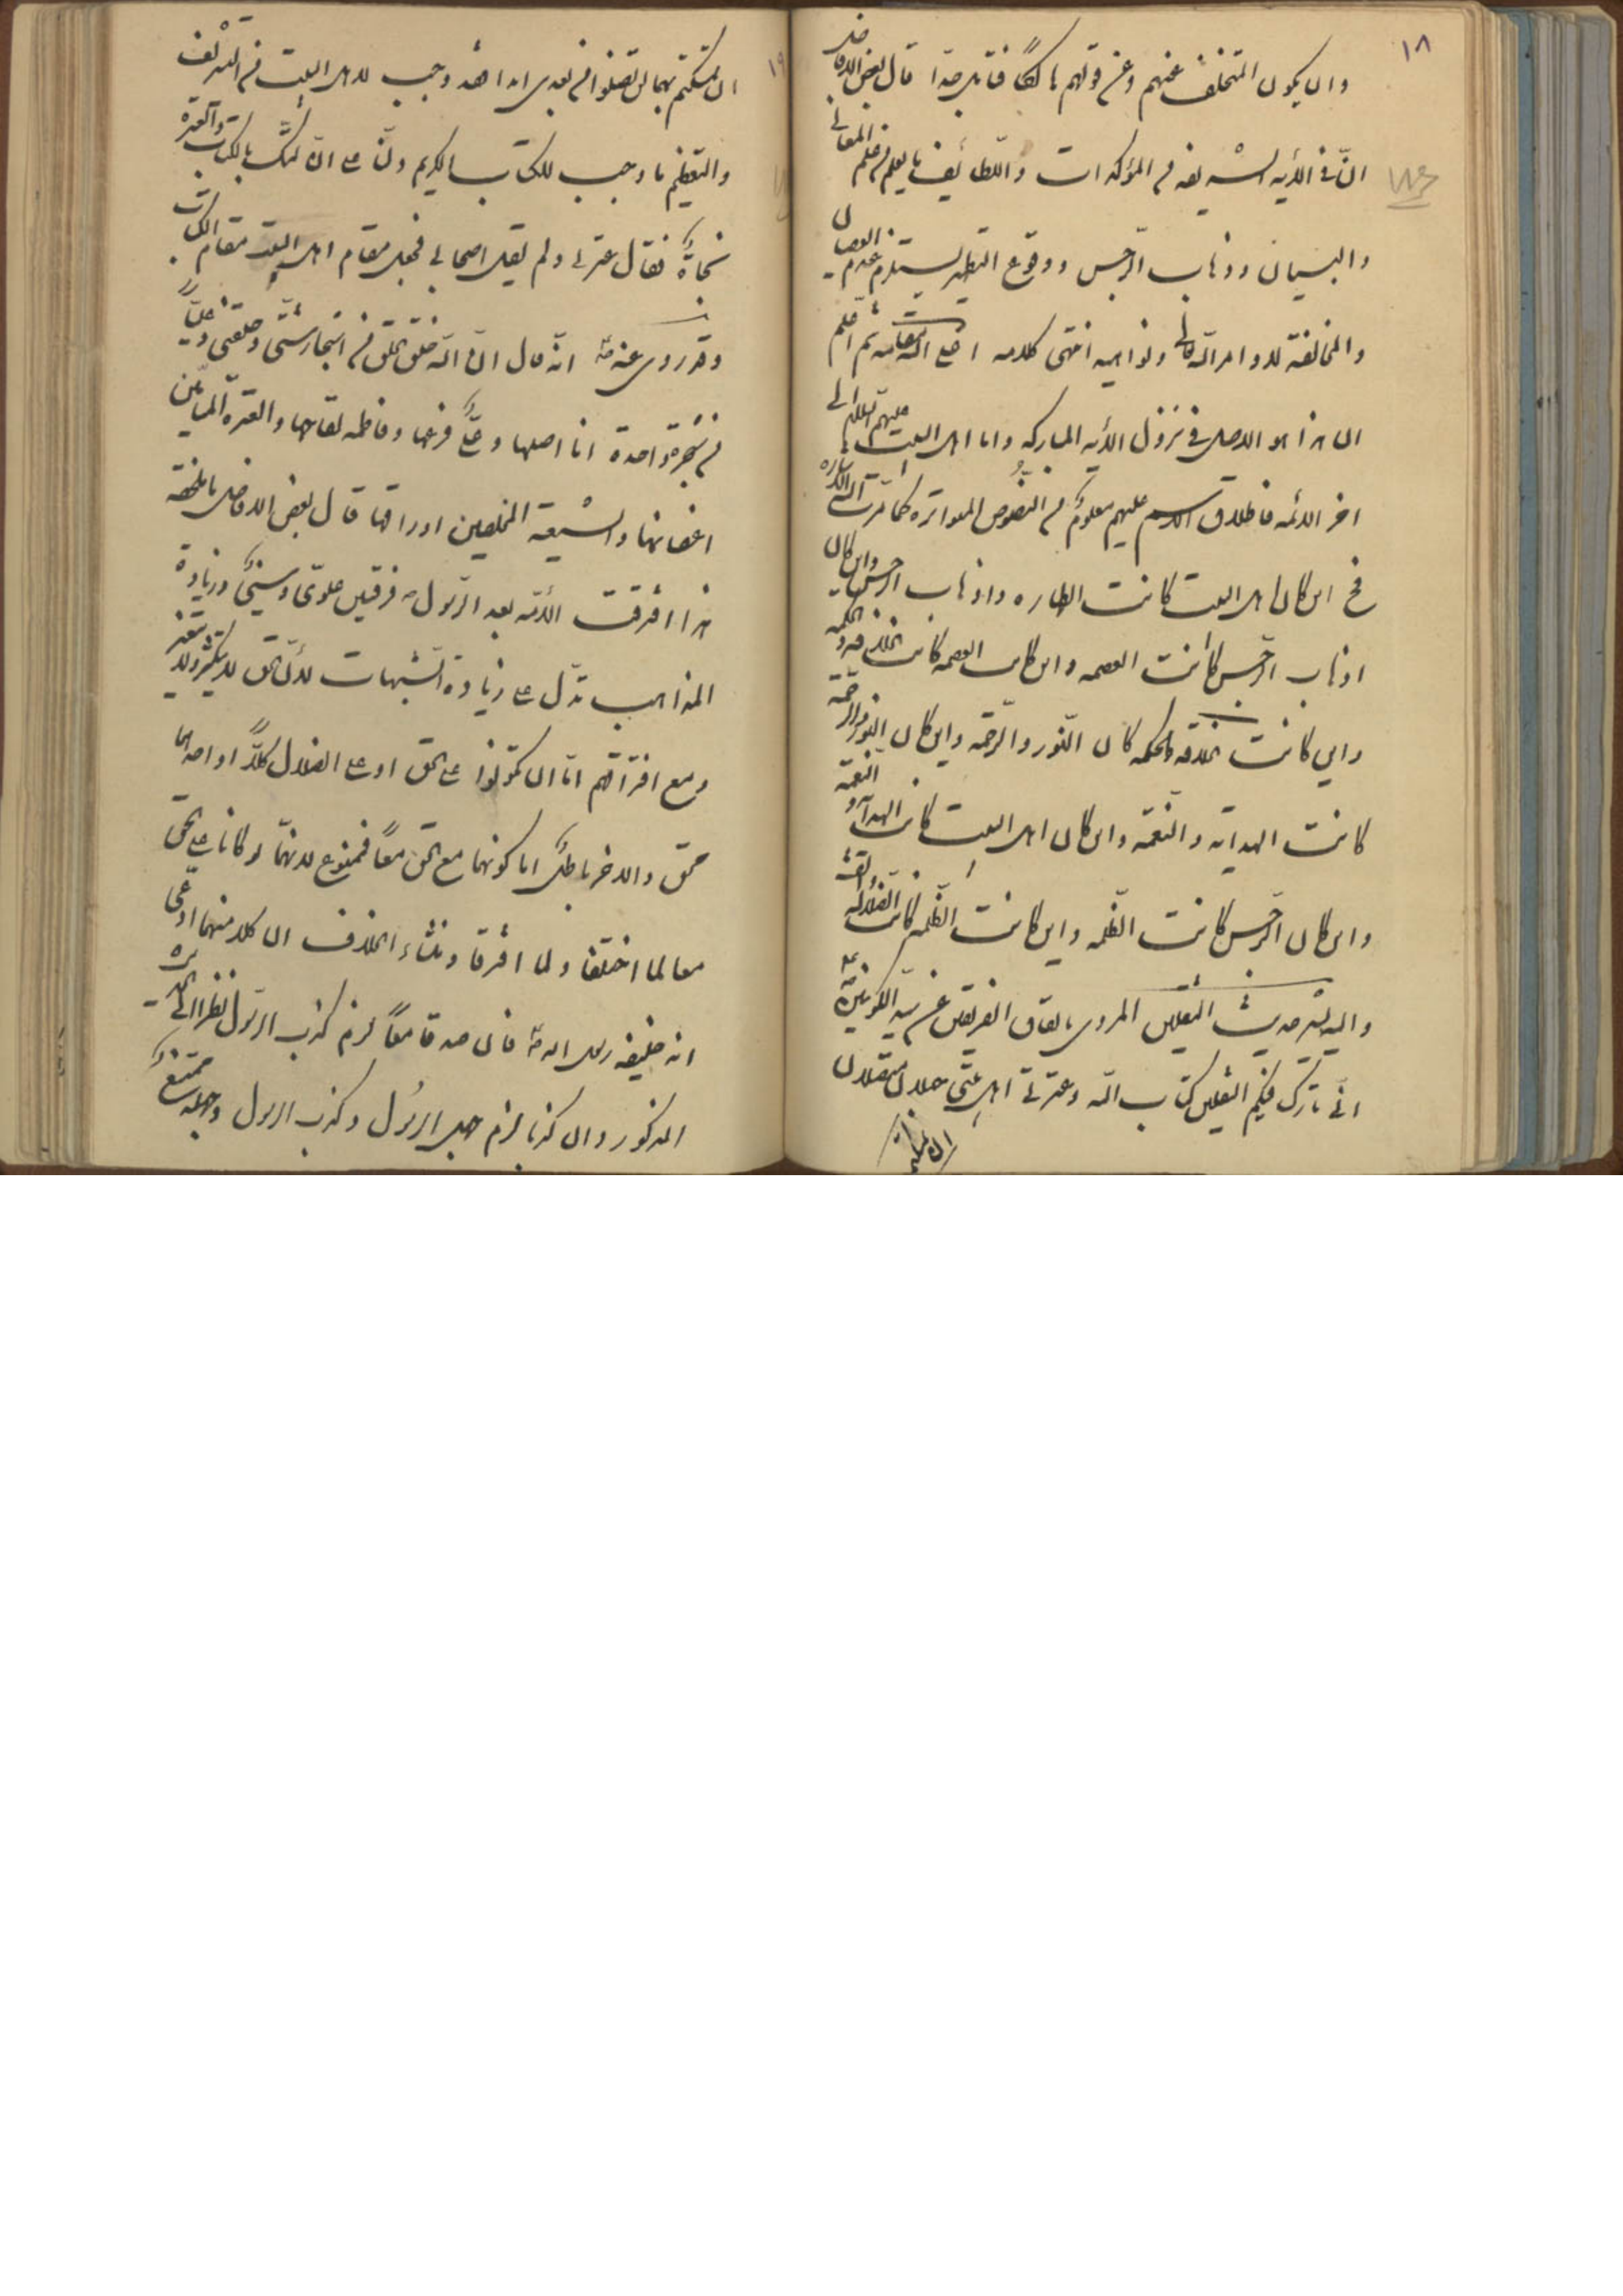 ١٨
وان يكون المتخلف عنهم وعن قولهم هالكا قال بعض الافاضل
انّ في الآيه الشريفه من المؤكدات واللطايف ما يعلم من علم المعاني
والبيان وذهاب الرّجس ووقوع التطهير يستلزم عدم العصيان
والمخالفة لاوامر الله تعالى ونواهيه انتهى كلامه الله مقامه ثم اعلم
ان هذا هو الاصل في نزول الآيه المباركه واما اهل البيت عليهم السلام الى
اخر الائمه فاطلاق الاسم عليهم معلوم من النصوص المتواتره كما مرّت اليه الاشاره
فح اين كان اهل البيت كانت الطهاره واذهاب الرجس واين كان
اذهاب الرّجس كانت العصمه واين كانت العصمه كانت الخلافه والحكمه
واين كانت الخلافه والحكمه كان النّور والرّحمه واين كان النور والرّحمة
كانت الهدايه والنّعمه واين كان اهل البيت كانت الهدايه والنعمة
واين كان الرّجس كانت الظلمه واين كانت الظّلمه كانت الضّلاله والفتنة
واليه يشير حديث الثقلين المروي باتفاق الفريقين عن سيّد الكونين
انّي تارك فيكم الثقلين كتاب الله وعترتي اهل بيتي
١٩
ان تمسكتم بهما لن تضلوا من بعدي ابدا وجب لاهل البيت من التشريف
والتعظيم ما وجب للكتاب الكريم ولنا على انّ تمسّك بالكتاب والعترة
نجاةٌ فقال عترتي ولم يقل اصحابي فجعل مقام اهل البيت مقام الكتاب
وقد روى عنه انّه قال انّ الله خلق الخلق من اشجار شتّى وخلقني وعليّا
من شجرة واحدة انا اصلها وعليّ فرعها وفاطمه لقاحها والعترة الميامين
اغصانها والشيعة المخلصين اوراقها قال بعض الافاضل ما ملخصه
هذا افترقت الامّة بعد الرّسول فرقتين علويّ وسنيّ وزيادة
المذاهب تدل على زيادة الشبهات لانّ الحق لا يتكثّر ولا يتغير
ومع افتراقهم امّا ان يكونوا على الحق او على الضلال كلّا او احدهما
محق والاخر باطل اما كونهما مع الحق معا فممنوع لانهما لو كانا على الحق
معا لما اختلفا ولما افترقا ومنشاء الخلاف ان كلا منهما ادعى
انه خليفه رسول الله فان صدقا معا لزم كذب الرّسول نظرا الى
المذكور وان كذبا لزم جهل الرّسول وكذب الرسول وجهله ممتنع